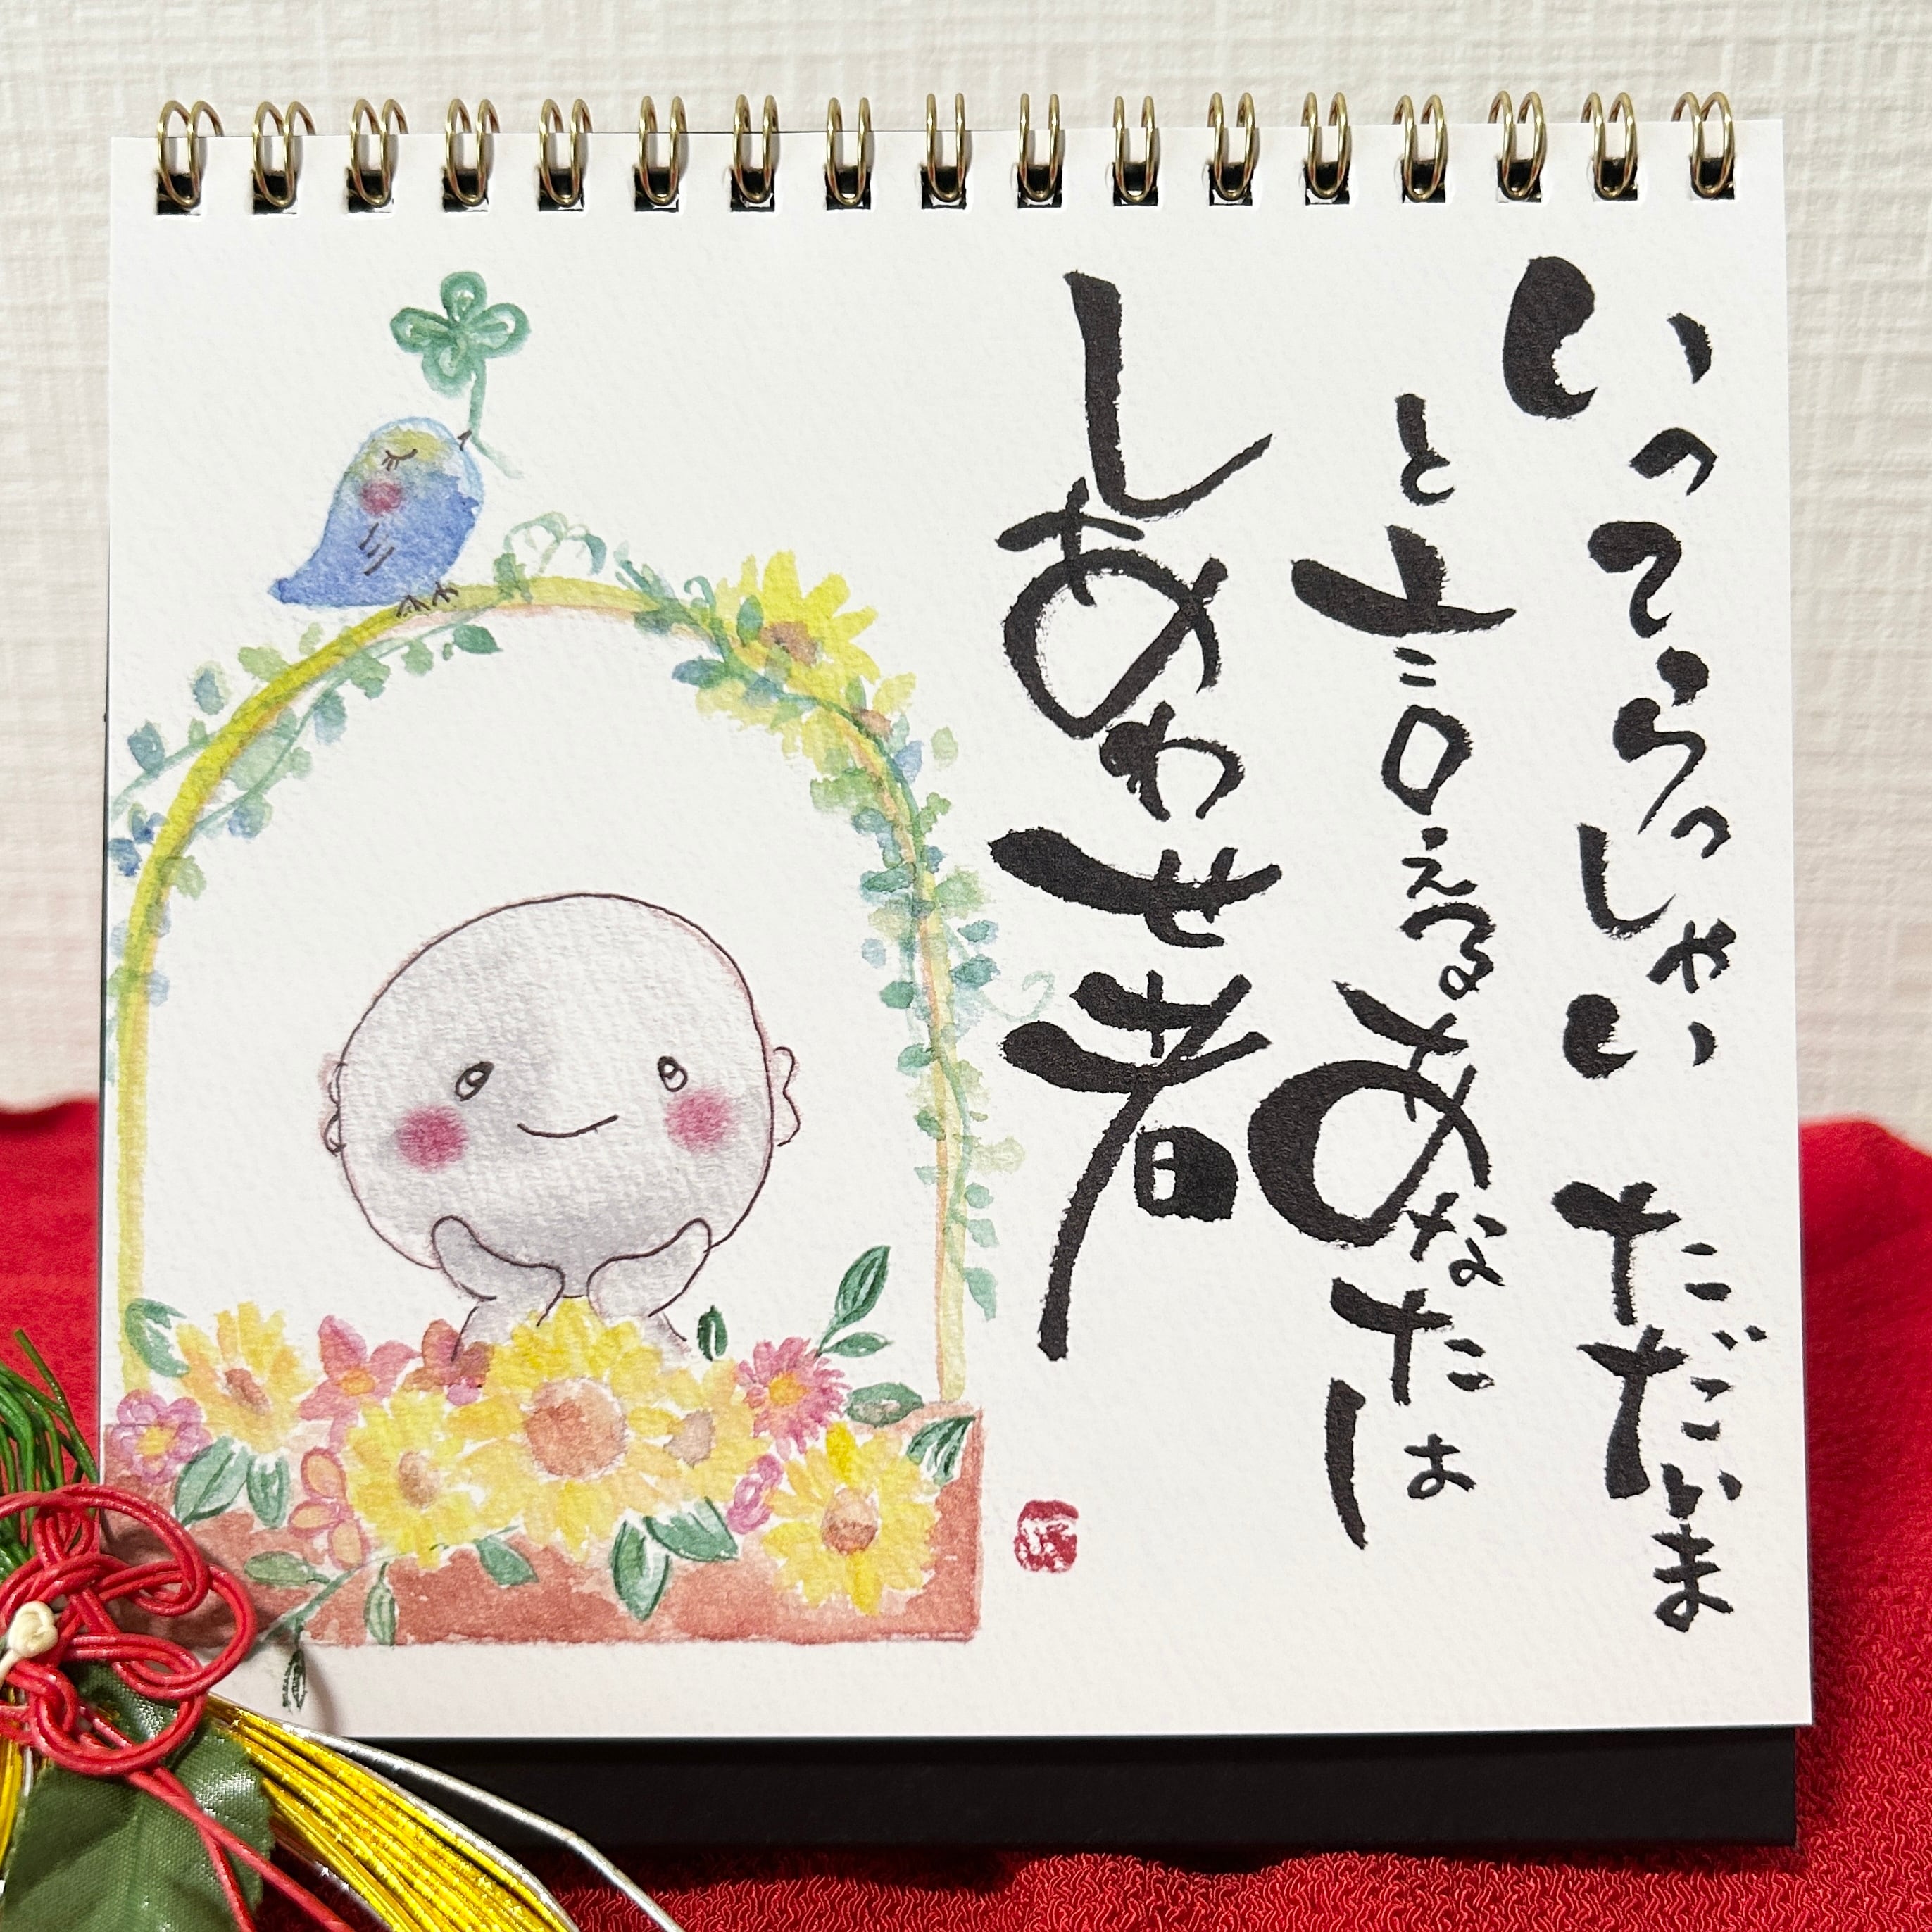 いってらっしゃい ただいま
と言えるあなたは
しあわせ者